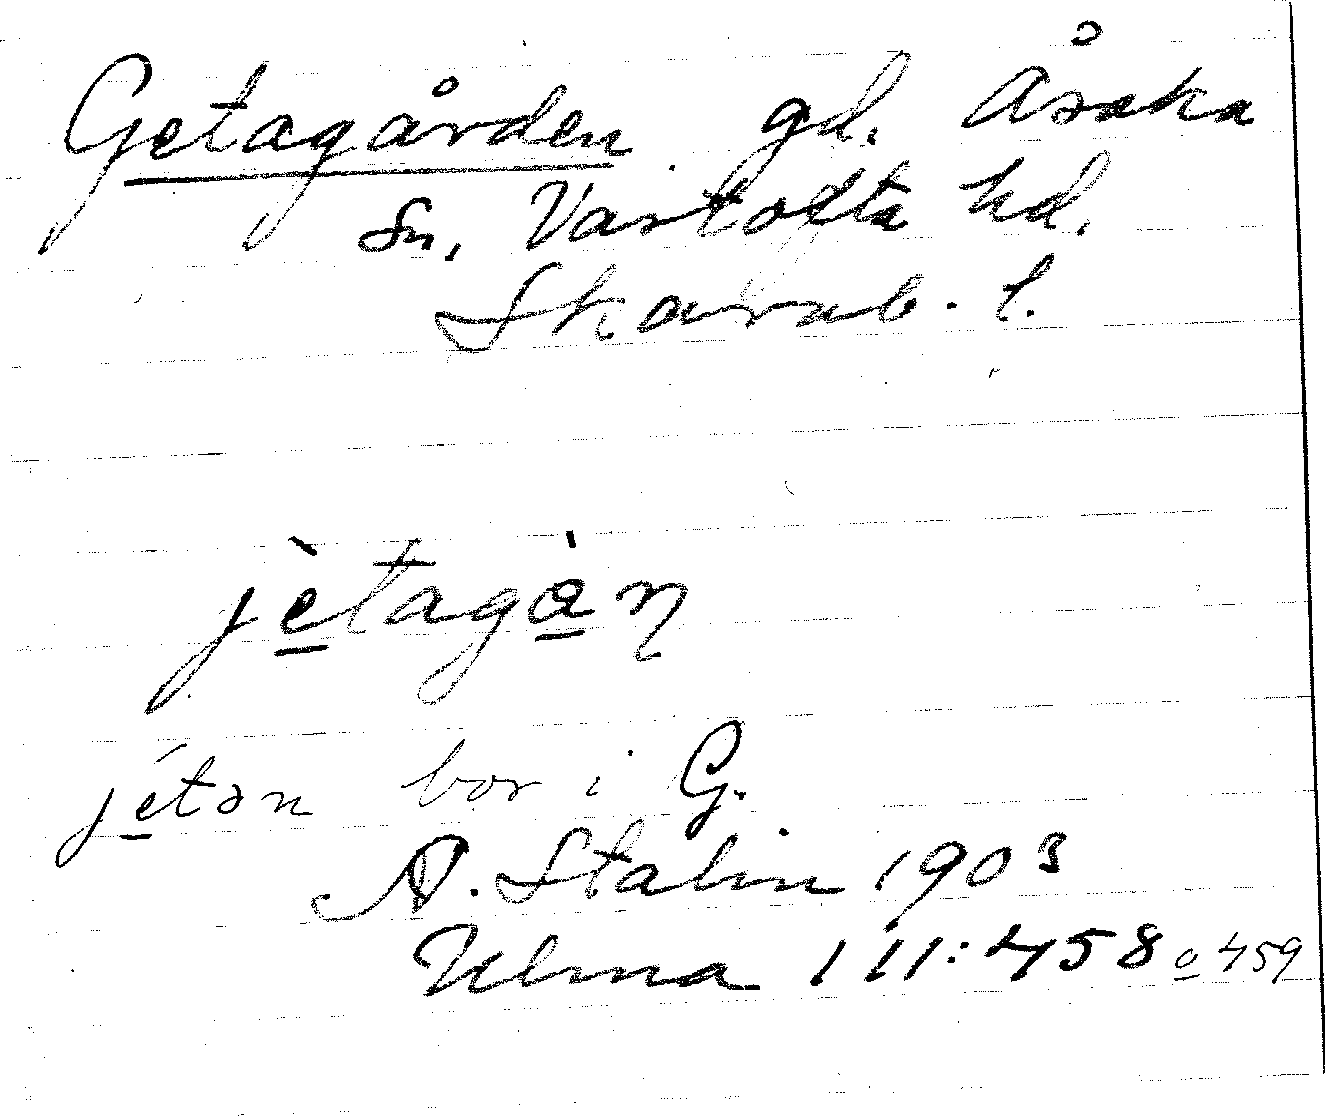 Getagården gd. Åsaka
sn, Vartofta hd.
Skarab. l.
jètagȧ̱ɳ
jétən bor i G.
A. Stalin 1903
Ulma 111:458 o 459